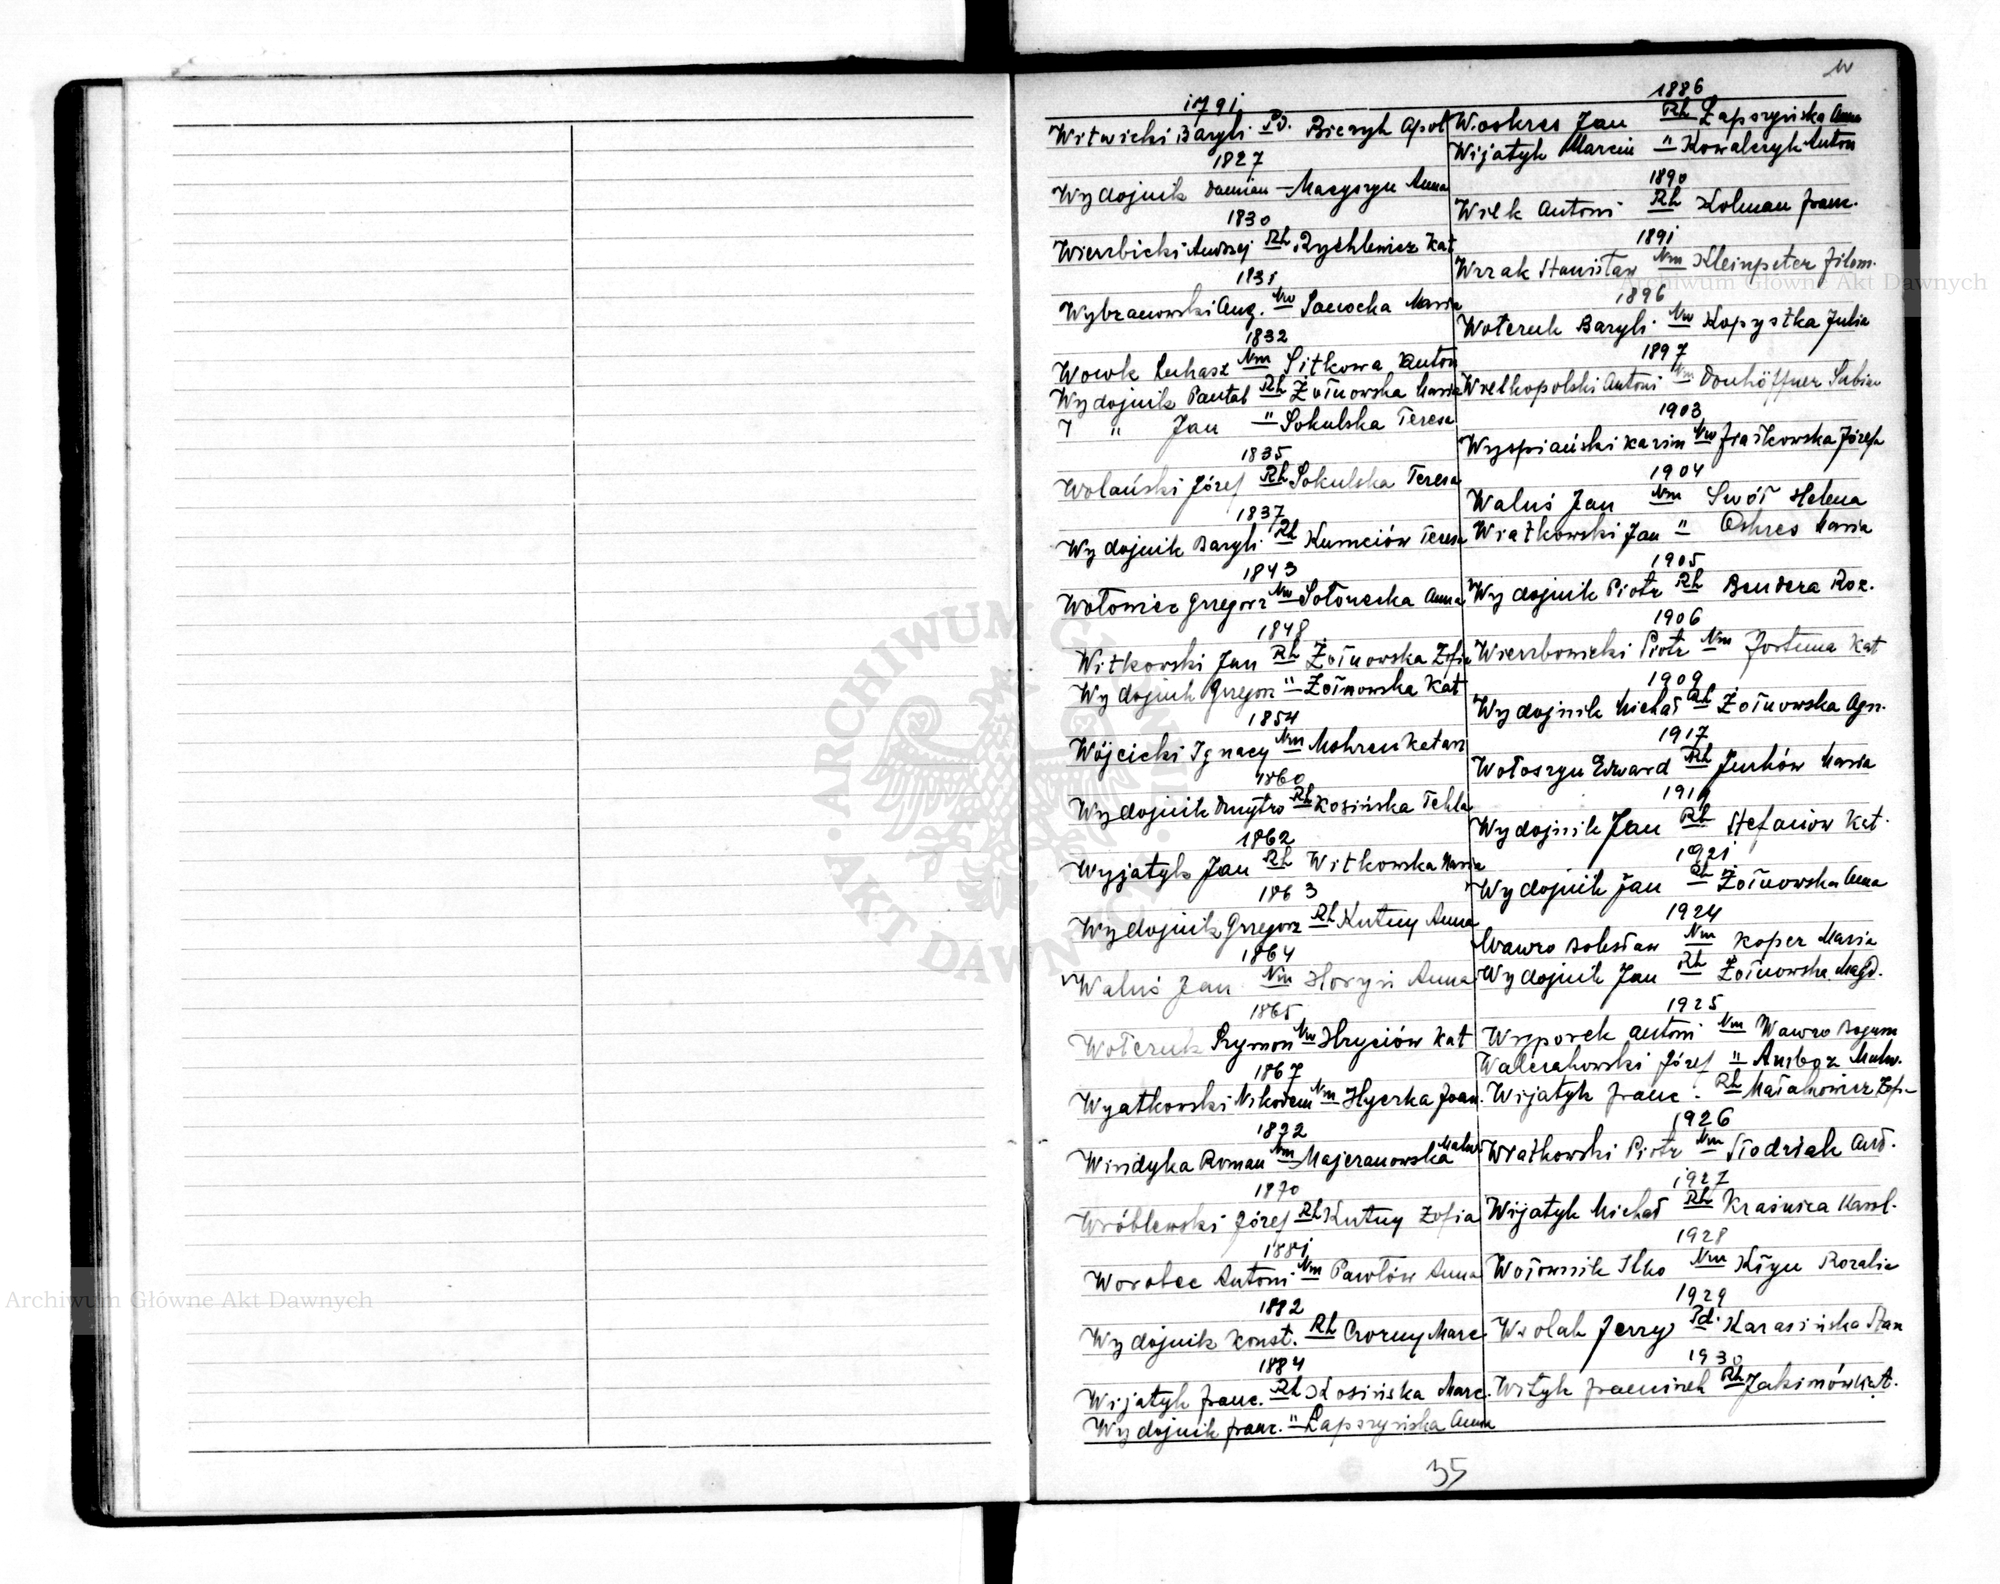 W
1791
Witwicki Bazyli Pd. Bieryk Apol
1827
Wydojnik Damian — Macyszyn Anna
1830
Wierzbicki Andrzej Rh Rychlewicz Kat
1831
Wybranowski Aug. Nw Sanocka Maria
1832
Wowk Łukasz Nm Sitkowa Anton
Wydojnik Pantal Rh Żołnowska Maria
" Jan " Sokulska Teresa
1835
Wolański Józef Rh Sokulska Teresa
1837
Wydojnik Bazyli Rh Kumciów Teresa
1843
Wołowicz Grzegorz Nw Sołonecka Anna
1848
Witkowski Jan Rh Żołnowska Zofia
Wydojnik Grzegorz " Żołnowska Kat
1854
Wójcicki Ignacy Nm Mokrzen Katarz
1860
Wydojnik Dmytro Rh Kosińska Tekla
1862
Wyjatyk Jan Rh Witkowska Maria
1863
Wydojnik Grzegorz Rh Kutny Anna
1864
Waluś Jan Nm Horyń Anna
1865
Woteruk Szymon Nw Hryciów Kat
1867
Wyatkowski Nikodem Nm Hycrka Joan.
1872
Windyka Roman Nm Majeranowska Malw
1870
Wróblewski Józef Rh Kutny Zofia
1881
Worobec Antoni Nm Pawłów Anna
1882
Wydojnik Konst. Rh Czorny Marc
1884
Wijatyk Franc. Rh Kosińska Marc.
Wydojnik Franc. " Łapszyńska Anna
1886
Woskres Jan Rh Łapszyńska Anna
Wijatyk Marcin " Kowalczyk Anton
1890
Wilk Antoni Rh Kolman Franc.
1891
Wrzak Stanisław Nm Kleinpeter Filom.
1896
Woteruk Bazyli Nw Kopystka Julia
1897
Wielkopolski Antoni Nm Donhöffner Sabin
1903
Wyspiański Kazim Nw Fiałkowska Józefa
1904
Waluś Jan Nm Swół Helena
Wiatkowski Jan " Oskres Maria
1905
Wydojnik Piotr Rh Bendera Roz.
1906
Wierzbowicki Piotr Nm Fortuna Kat
1909
Wydojnik Michał Rh Żołnowska Agn.
1917
Wołoszyn Edward Rh Jurków Maria
1919
Wydojnik Jan Rh Stefaniow Kat.
1921
Wydojnik Jan Rh Żołnowska Anna
1924
Wawro Bolesław Nm Koper Maria
Wydojnik Jan Rh Żołnowska Magd.
1925
Wyporek Antoni Nm Wawro Bogum
Walczakowski Józef " Amboz Malw.
Wijatyk Franc. Rh Małachowicz Zofi
1926
Wiatkowski Piotr Nm Słodziak And.
1927
Wijatyk Michał Rh Kraśnica Karol.
1928
Wołownik Ilko Nm Kłyn Rozalia
1929
Wolak Jerzy Pd. Karasińska Stan
1930
Wityk Franciszek Rh Jakimów Kat.
35
ARCHIWUM GŁÓWNE
AKT DAWNYCH
Archiwum Główne Akt Dawnych
Archiwum Główne Akt Dawnych